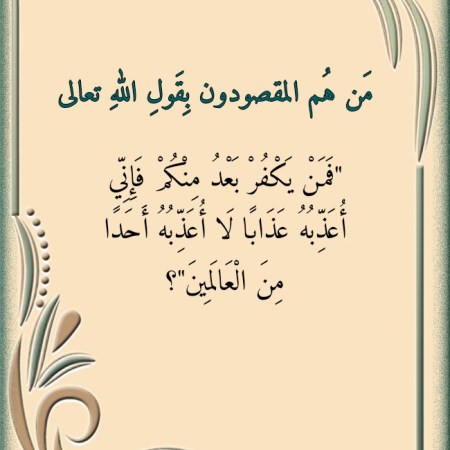 مَن هُم المقصودون بِقَولِ اللهِ تعالى
"فَمَنْ يَكْفُرْ بَعْدُ مِنْكُمْ فَإِنِّي
أُعَذِّبُهُ عَذَابًا لَا أُعَذِّبُهُ أَحَدًا
مِنَ الْعَالَمِينَ"؟